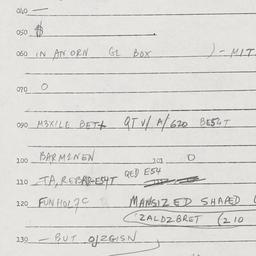 040 —
050 $
060 IN AN ORN GL BOX ) - MIT
070 O
090 M3XILE BET+ QT V/ A/620 BE54T
100 BARMINEN 101 O
110 -TA, QED E54
120 FUNHOL7C MANSIZED SHAPED (
ZALDZBRET (210
130 - BUT OJZGISN